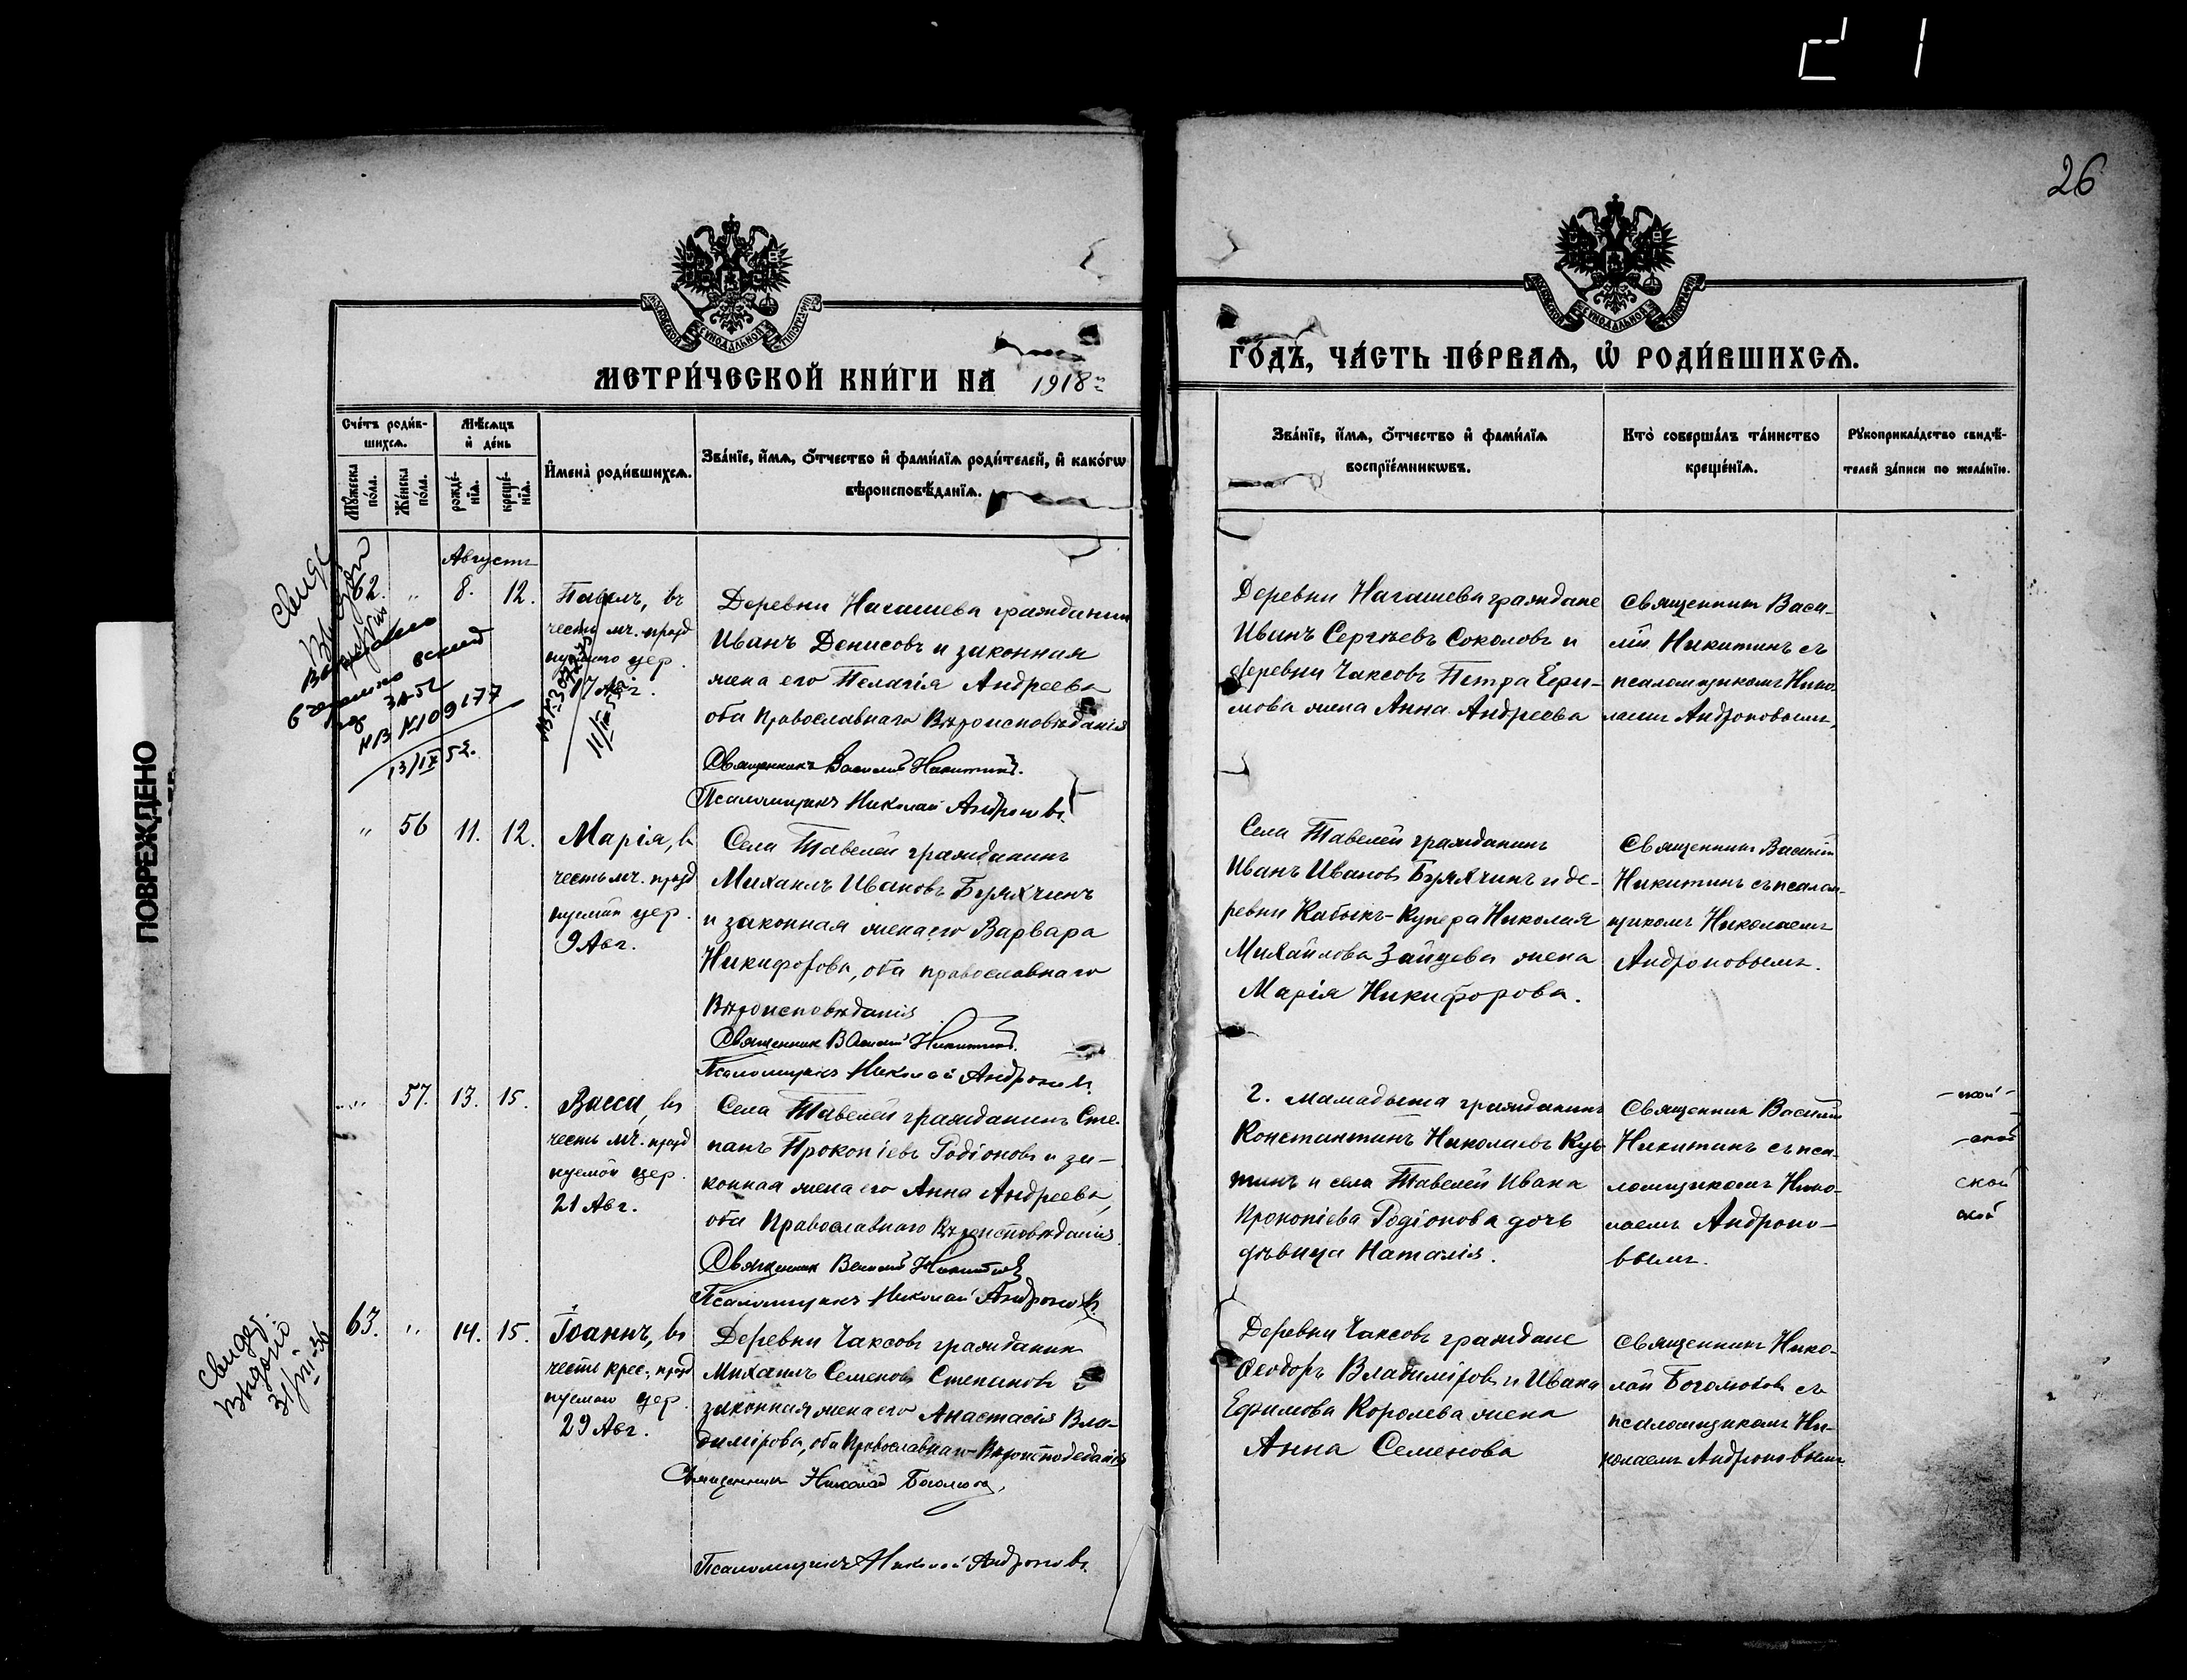 26
МЕТРИ́ЧЕСКОЙ КНИ́ГИ НА 1918 г.
ГО́ДЪ, ЧА́СТЬ ПЕ́РВАѦ, Ѡ РОДИ́ВШИХСѦ.
Сче́тъ роди́в-
шихсѧ.
Мꙋ́жеска
по́ла.
Же́нска
по́ла.
Мѣ́сѧцъ
и де́нь
рожде́-
нїѧ.
креще́-
нїѧ.
Имена̀ роди́вшихсѧ.
Зва́нїе, и́мѧ, ѻ́тчество и фами́лїѧ роди́телей, и како́гѡ
вѣроисповѣ́данїѧ.
Зва́нїе, и́мѧ, ѻ́тчество и фами́лїѧ
воспрїе́мникѡвъ.
Кто̀ соверша́лъ та́инство
креще́нїѧ.
Рꙋкоприкла́дство свидѣ́-
телей за́писи по жела́нїю.
ПОВРЕЖДЕНО
Августъ
62. " 8. 12.
Павелъ, въ
честь мч. празд
нуемаго цер.
17 Авг.
Деревни Нагашева гражданин
Иванъ Денисовъ и законная
жена его Пелагія Андреева
оба Православнаго Вѣроисповѣданія
Священникъ Василий Никитинъ.
Псаломщикъ Николай Андроновъ.
Деревни Нагашева граждане
Иванъ Сергѣевъ Соколовъ и
деревни Чаксовъ Петра Ефи-
мова жена Анна Андреева
Священникъ Васи-
лій Никитинъ съ
псаломщикомъ Нико-
лаемъ Андроновымъ.
НВ №109177
13/IX 52.
" 56 11. 12.
Марія, въ
честь мч. празд
нуемой цер.
9 Авг.
Села Тавелей гражданинъ
Михаилъ Ивановъ Буряхчинъ
и законная жена его Варвара
Никифорова, оба православнаго
Вѣроисповѣданія
Священник Василий Никитинъ.
Псаломщикъ Николай Андроновъ.
Села Тавелей гражданинъ
Иванъ Ивановъ Буряхчинъ и де-
ревни Кабыкъ-Купера Николая
Михайлова Зайцева жена
Марія Никифорова.
Священникъ Василій
Никитинъ съ псалом-
щикомъ Николаемъ
Андроновымъ.
" 57. 13. 15.
Васса, въ
честь мч. празд
нуемой цер.
21 Авг.
Села Тавелей гражданинъ Сте-
панъ Прокопіевъ Родіоновъ и за-
конная жена его Анна Андреева,
оба Православнаго Вѣроисповѣданія
Священник Василий Никитинъ
Псаломщикъ Николай Андроновъ.
г. Мамадыша гражданинъ
Константинъ Николаевъ
и села Тавелей Ивана
Прокопіева Родіонова дочь
дѣвица Наталія.
Священникъ Василій
Никитинъ съ пса-
ломщикомъ Нико-
лаемъ Андроно-
вымъ.
свидет.
выдано
63. " 14. 15.
Іоаннъ, въ
честь крес., празд
нуемаго цер.
29 Авг.
Деревни Чаксовъ гражданин
Михаилъ Семеновъ Степановъ и
законная жена его Анастасія Вла-
димірова, оба Православнаго Вѣроисповѣданія
Священникъ Николай Боголюбов.
Псаломщикъ Николай Андроновъ.
Деревни Чаксовъ граждане
Ѳеодоръ Владиміровъ и Ивана
Ефимова Королева жена
Анна Семенова
Священникъ Нико-
лай Боголюбовъ съ
псаломщикомъ Ни-
колаемъ Андроновымъ